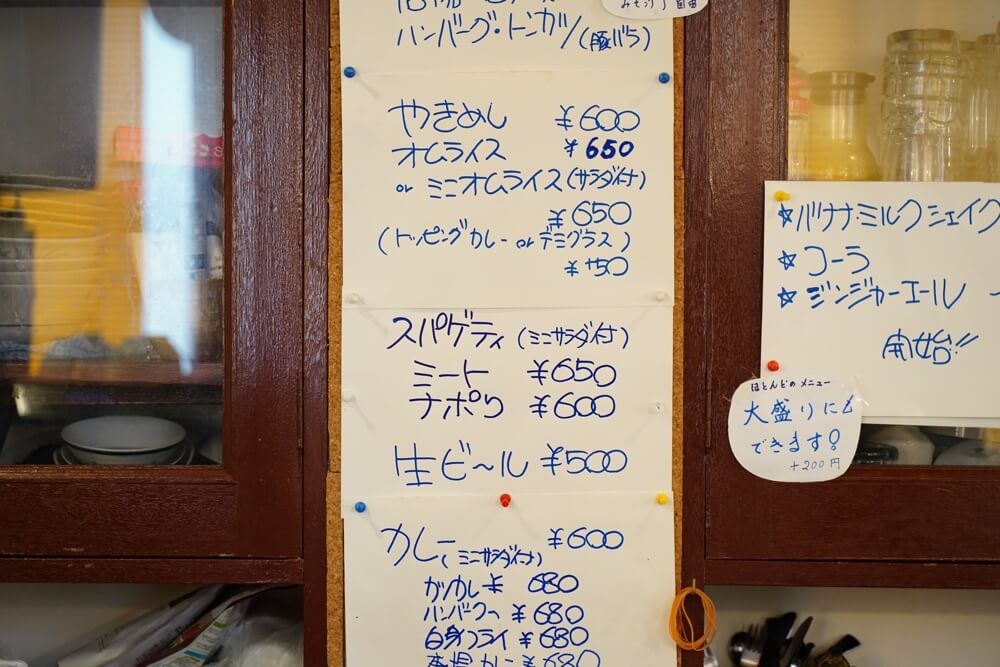 ハンバーグ・トンカツ(豚バラ)
やきめし ¥600
オムライス ¥650
or ミニオムライス(サラダ付)
¥650
(トッピングカレー or デミグラス)
¥150
スパゲティ(ミニサラダ付)
ミート ¥650
ナポリ ¥600
生ビ～ル ¥500
カレー(ミニサラダ付) ¥600
カツカレー ¥680
ハンバーグ〃 ¥680
白身フライ ¥680
¥680
☆バナナミルクシェイク
☆コーラ
☆ジンジャーエール
開始!!
ほとんどのメニュー
大盛りにも
できます!
+200円